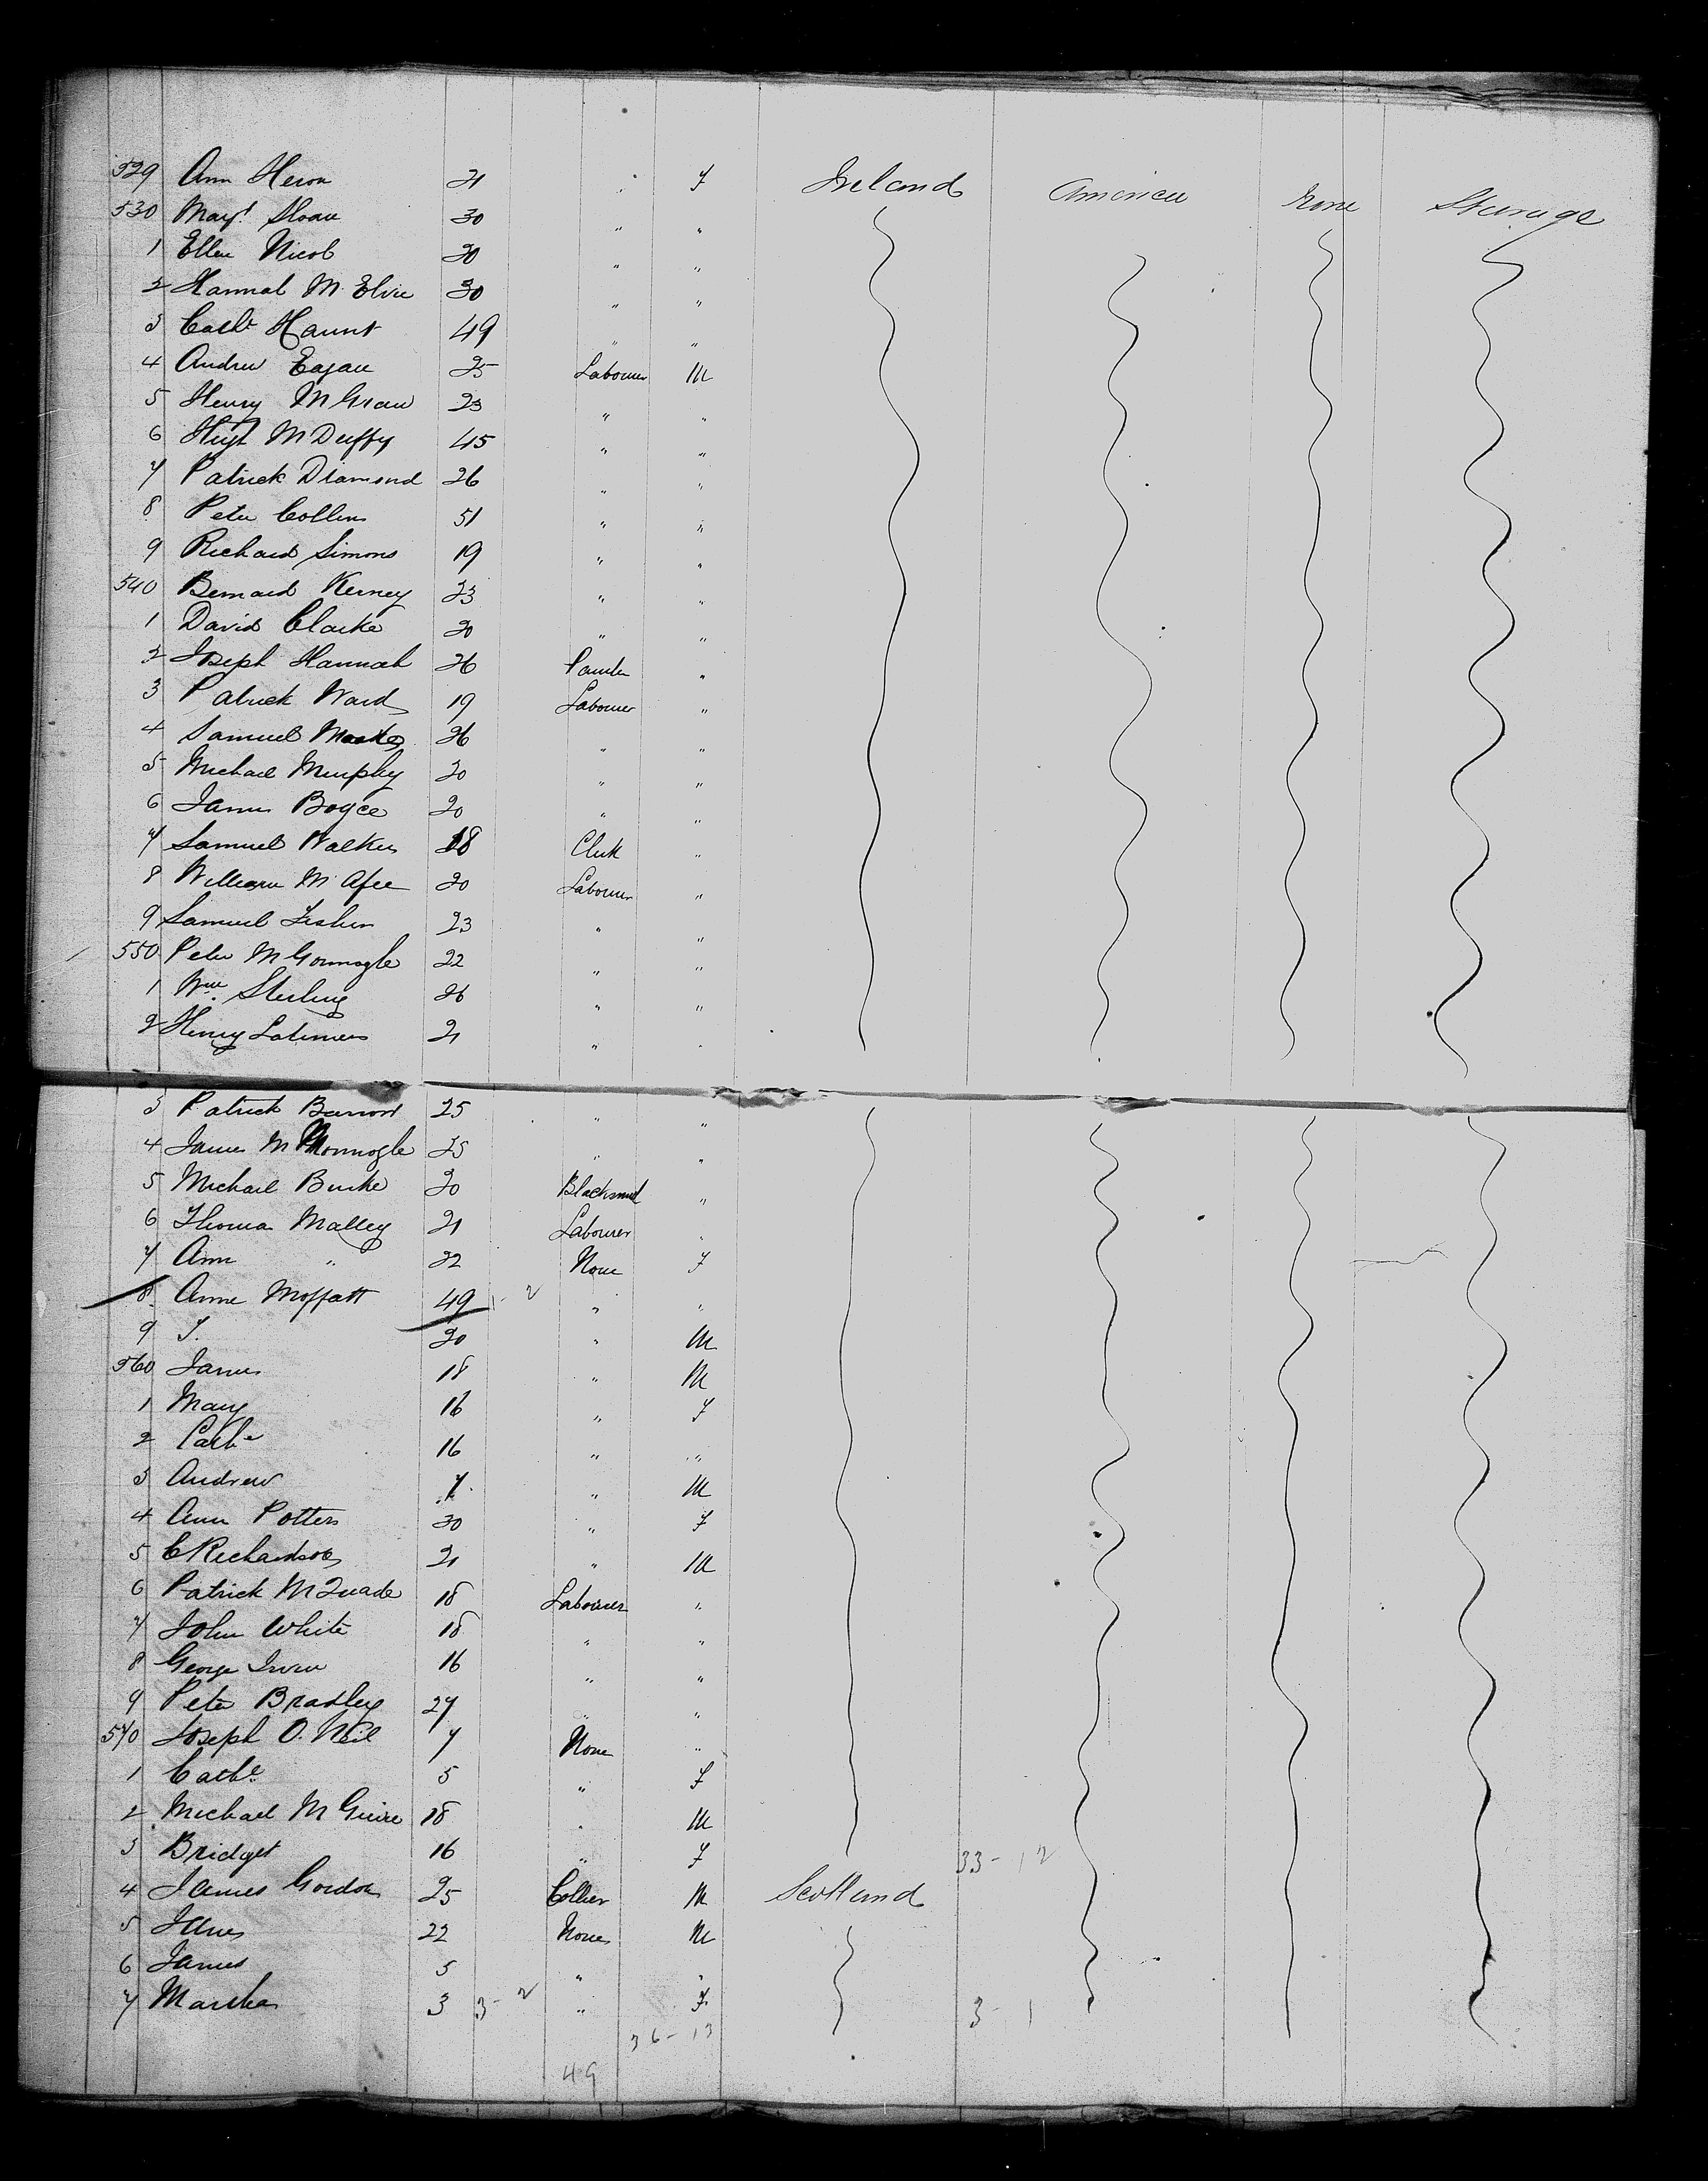 529 Ann Heron 21 " F Ireland America None Steerage
530 Margt Sloan 30 " "
1 Ellen Nicol 20 " "
2 Hannah McElvie 30 " "
3 Cathe Haunt 49 " "
4 Andrew Eagan 25 Labourer M
5 Henry McGraw 23 " "
6 Hugh McDuffy 45 " "
7 Patrick Diamond 26 " "
8 Peter Collins 51 " "
9 Richard Simons 19 " "
540 Bernard Kerney 23 " "
1 David Clarke 20 " "
2 Joseph Hannah 26 Painter "
3 Patrick Ward 19 Labourer "
4 Samuel 26 " "
5 Michael Murphy 20 " "
6 James Boyce 20 " "
7 Samuel Walker 18 Clerk "
8 William McAfee 20 Labourer "
9 Samuel Fisher 23 " "
550 Peter McGonnogle 22 " "
1 Wm Sterling 26 " "
2 Henry Latimers 21 " "
3 Patrick 25 " "
4 James Mc 25 " "
5 Michael Burke 20 Blacksmith "
6 Thomas Malley 21 Labourer "
7 Ann " 22 None F
8 Anne Moffatt 49 1-2 " "
9 J. 20 " M
560 James 18 " M
1 Mary 16 " F
2 Cathe 16 " "
3 Andrew 7 " M
4 Ann Potters 30 " F
5 C Richardson 21 " M
6 Patrick McQuade 18 Labourer "
7 John White 18 " "
8 George Irvin 16 " "
9 Peter Bradley 27 " "
570 Joseph O.Neil 7 None "
1 Cathe 5 " F
2 Michael McGuire 18 " M
3 Bridget 16 " F 33-12
4 James Gordon 25 Collier M Scotland
5 Janes 22 None M
6 James 5 " "
7 Martha 3 3-2 " F 3-1
36-13
49